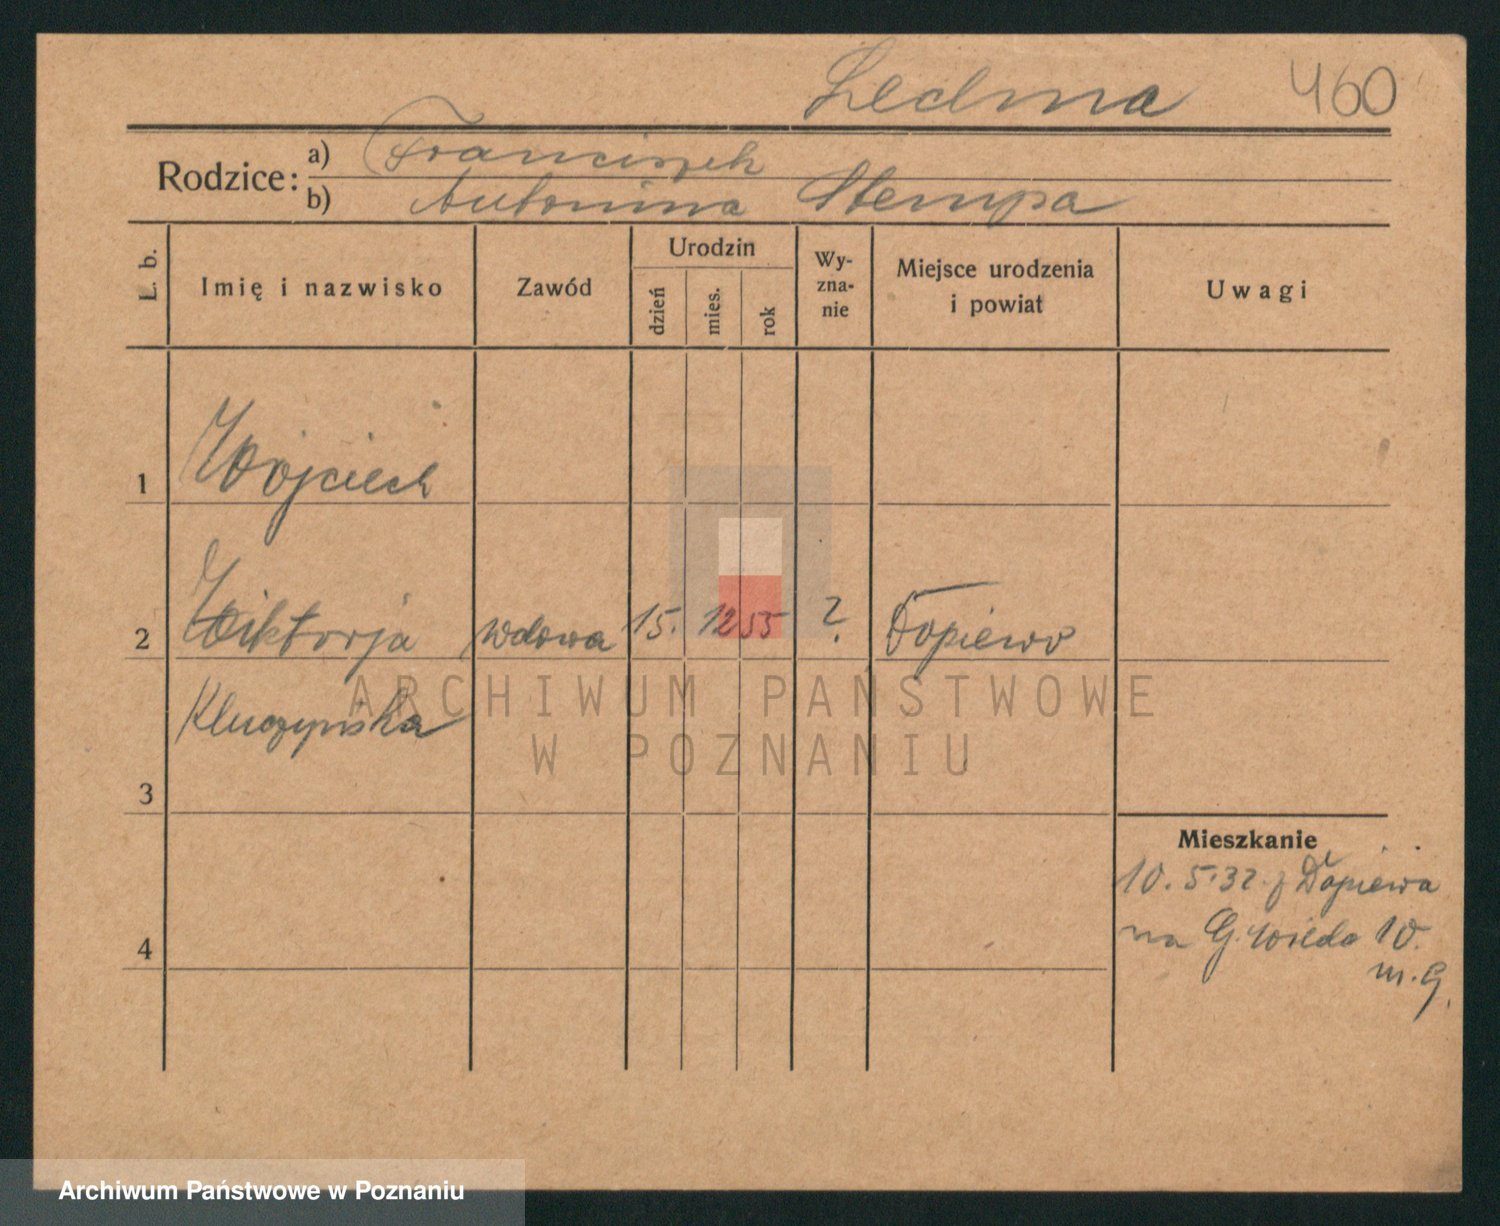 Ledma 460
Rodzice: a) Franciszek
b) Antonina Stempa
L. b. Imię i nazwisko Zawód Urodzin dzień mies. rok Wy-zna-nie Miejsce urodzenia i powiat Uwagi
1 Wojciech
2 Wiktorja wdowa 15. 12 55 ? Dopiewo
Kluczyńska
3
Mieszkanie
10. 5. 32. z Dopiewa
na G. Wilda 10.
4
m. 9.
ARCHIWUM PAŃSTWOWE
W POZNANIU
Archiwum Państwowe w Poznaniu